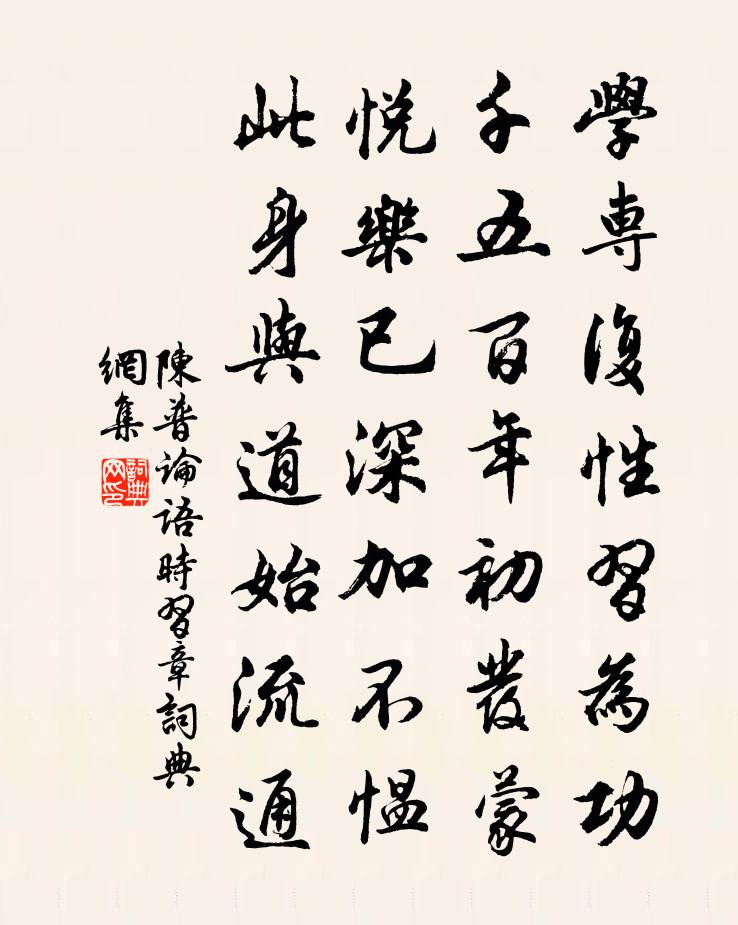 學専復性習為功
千五百年初發蒙
悦樂已深加不愠
此身與道始流通
陳普論語時習章詞典
網集
詞典
网印